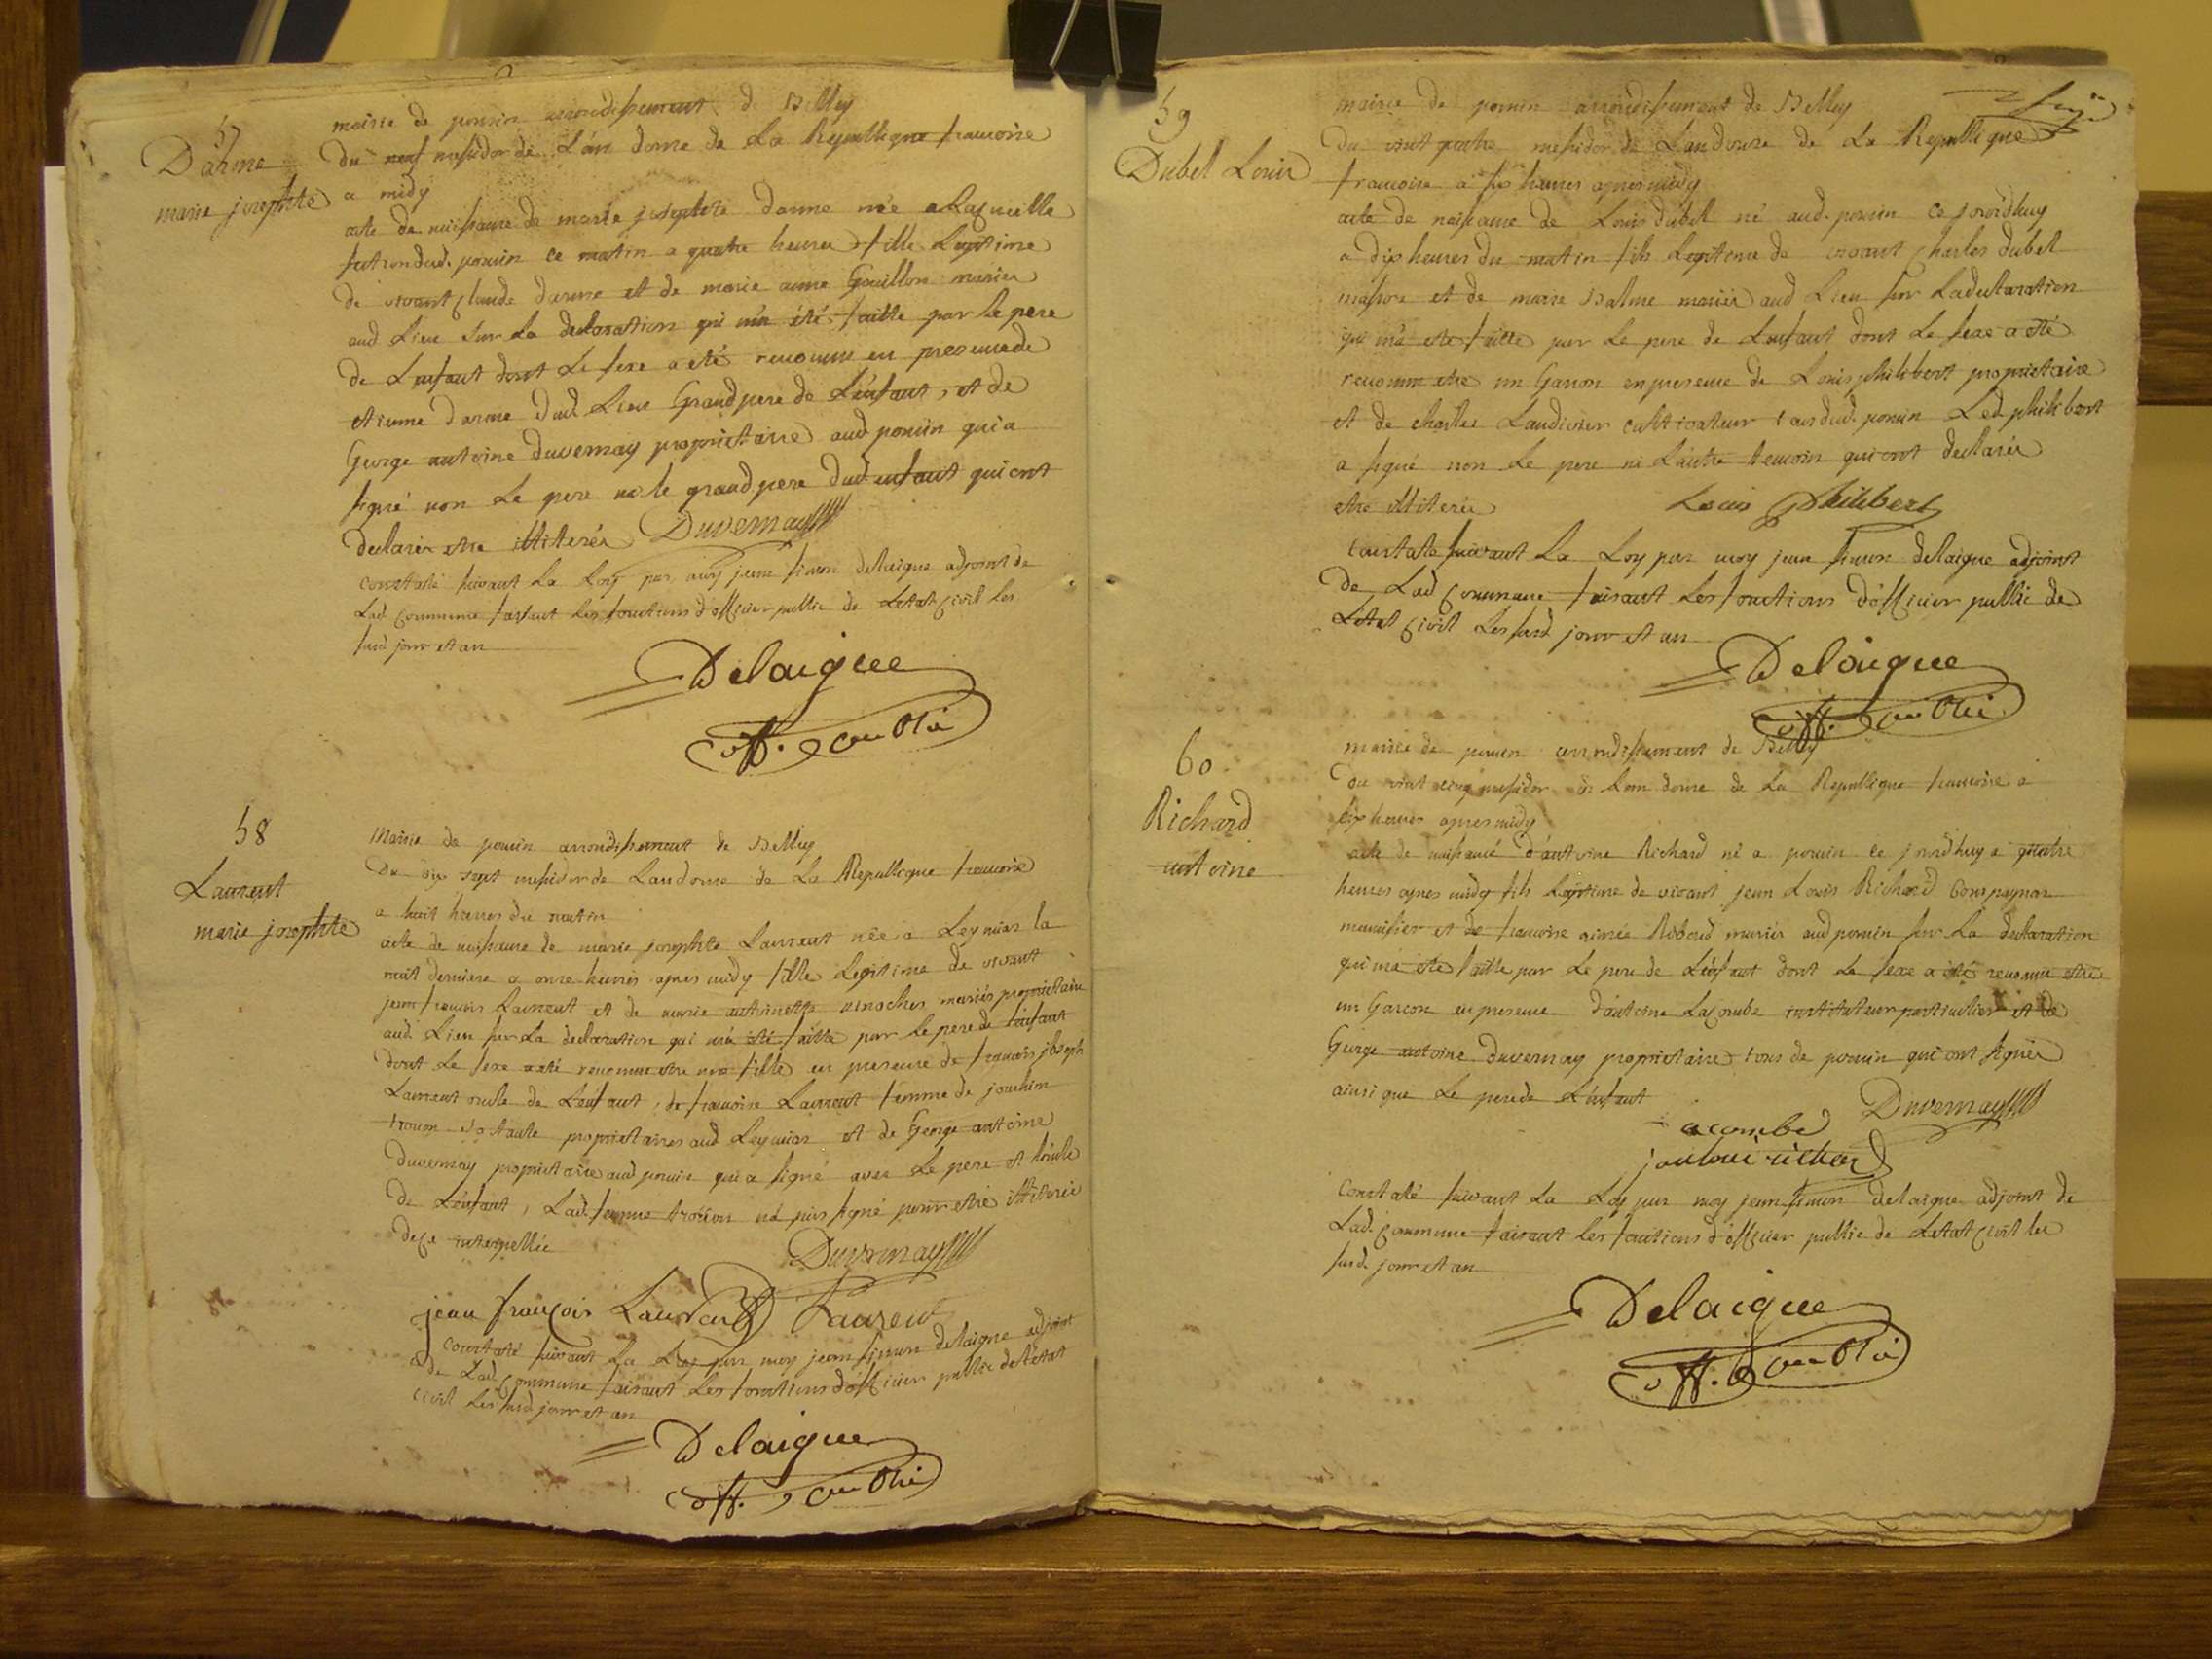 57
Darme
marie josephte
mairie de poncin arrondissement de Belley
du neuf messidor de L'an douze de La Republique francoise
a midy
acte de naissance de marie josephte darme née a
dud. poncin ce matin a quatre heures fille Legitime
de vivant Claude darme et de marie anne Gouillon mariés
aud Lieu sur La declaration qui m'a été faitte par le pere
de Lenfant dont Le sexe a eté reconnu en presence de
etienne darme dud. Lieu Grand pere de L'enfant, et de
George antoine Duvernay proprietaire aud poncin qui a
signé non Le pere ni le grand pere dud enfant qui ont
declarés etre illiterés Duvernay
constaté suivant La Loy par moy jean simon delaigue adjoint de
Lad Commune faisant Les fonctions d'officier public de Letat Civil Les
susd jour et an
Delaigue
off. public
58
Laurent
marie josephte
Mairie de poncin arrondissement de Belley
Du dix sept messidor de Lan douze de La Republique francoise
a huit heures du matin
acte de naissance de marie josephte Laurent née a Leymiaz la
nuit derniere a onze heures apres midy fille Legitime de vivant
jean francois Laurent et de marie antoinette mariés proprietaires
aud. Lieu sur La declaration qui m'a été faitte par Le pere de Lenfant
dont Le sexe a eté reconnu etre une fille en presence de francois joseph
Laurent oncle de Lenfant, de francoise Laurent femme de joachim
sa tante proprietaires aud Leymiaz et de George antoine
Duvernay proprietaire aud poncin qui a signé avec Le pere et L'oncle
de Lenfant, Lad. femme n'a pas signé pour etre illiterée
de ce interpellée
Duvernay
jean françois Laurent Laurent
Constaté suivant La Loy par moy jean simon delaigue adjoint
de Lad. Commune faisant Les fonctions d'officier public de Letat
civil Les susd jour et an
Delaigue
off. public
59
Dubel Louis
mairie de poncin arrondissement de Belley
Du vint quatre messidor de Lan douze de La Republique
francoise a six heures apres midy
acte de naissance de Louis dubel né aud. poncin ce jourdhuy
a dix heures du matin fils Legitime de vivant Charles dubel
masson et de marie Balme mariés aud Lieu sur La declaration
qui m'a eté faitte par Le pere de Lenfant dont Le sexe a eté
reconnu etre un Garson en presence de Louis philibert proprietaire
et de charles Laudinier cultivateur tous dud. poncin Led. philibert
a signé non Le pere ni L'autre temoin qui ont declarés
etre illiterés Louis Philibert
Constaté suivant La Loy par moy jean simon delaigue adjoint
de Lad Commune faisant Les fonctions d'officier public de
Letat Civil Les susd jour et an
Delaigue
off. public
60
Richard
antoine
mairie de poncin arrondissement de Belley
Du vint cinq messidor de Lan douze de La Republique francoise a
six heures apres midy
acte de naissance d'antoine Richard né a poncin ce jourdhuy a quatre
heures apres midy fils Legitime de vivant jean Louis Richard Compagnon
menuisier et de francoise aimée Reboud mariés aud poncin sur La declaration
qui m'a eté faitte par Le pere de Lenfant dont Le sexe a eté reconnu etre
un Garcon en presence d'antoine Lacombe instituteur particulier et de
George antoine Duvernay proprietaire tous de poncin qui ont signés
ainsi que Le pere de Lenfant
Duvernay
acombe
jan loui richard
Constaté suivant La Loy par moy jean simon delaigue adjoint de
Lad. Commune faisant Les fonctions d'officier public de Letat Civil les
susd. jour et an
Delaigue
off. public